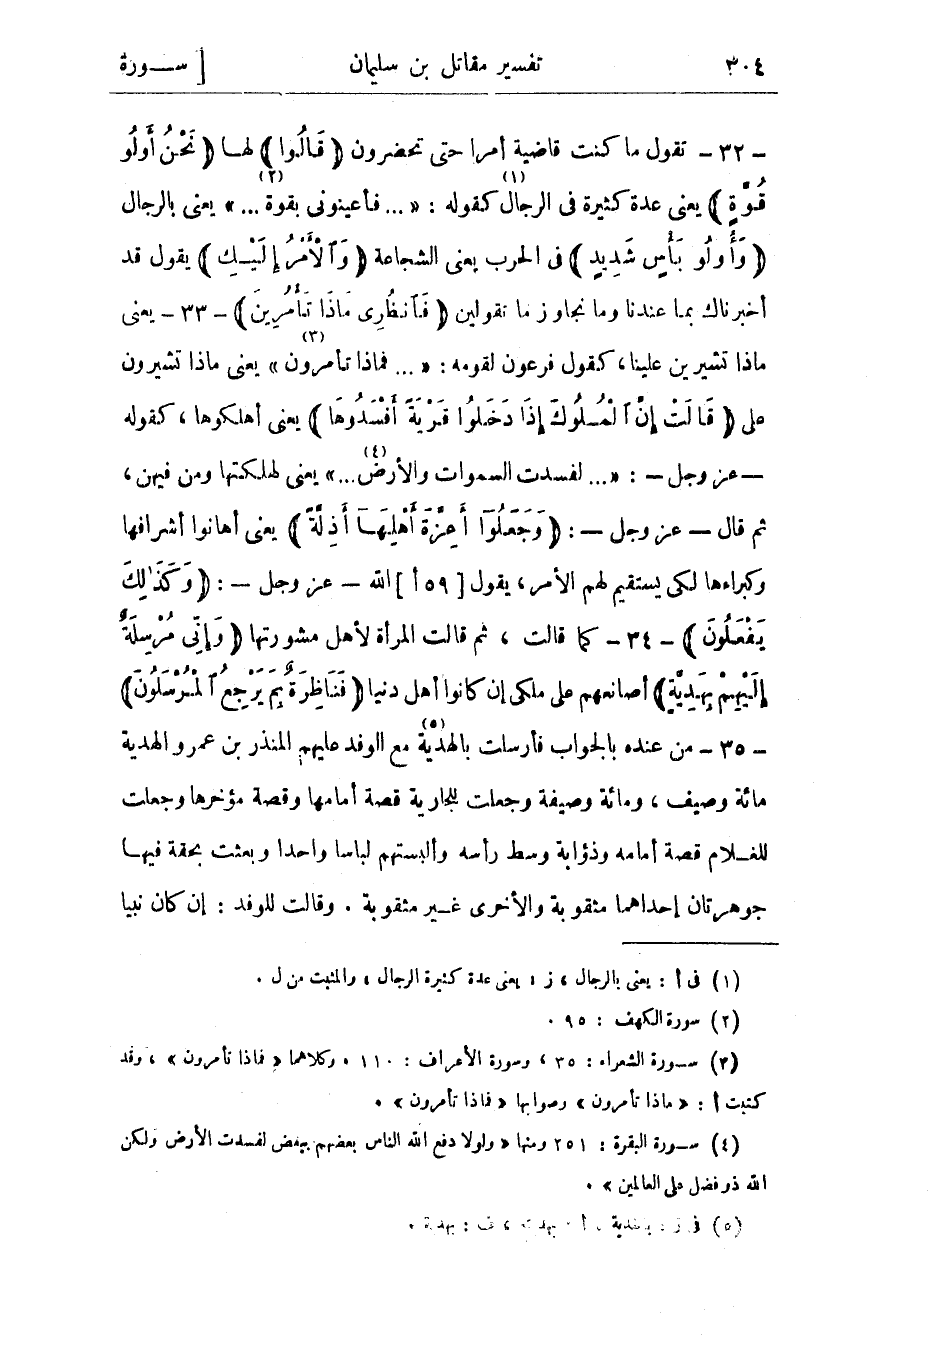 ٣٠٤ تفسير مقاتل بن سليمان [ سـورة
- ٣٢ - تقول ما كنت قاضية أمرا حتى تحضرون ﴿ قَالُوا ﴾ لهـا ﴿ نَحْنُ أُولُو
قُوَّةٍ ﴾ يعنى عدة كثيرة فى الرجال (١) كقوله : « ... فأعينونى بقوة ... » (٢) يعنى بالرجال
﴿ وَأُولُو بَأْسٍ شَدِيدٍ ﴾ فى الحرب يعنى الشجاعة ﴿ وَٱلْأَمْرُ إِلَيْـكِ ﴾ يقول قد
أخبرناك بما عندنا وما نجاوز ما تقولين ﴿ فَٱنظُرِى مَاذَا تَأْمُرِينَ ﴾ - ٣٣ - يعنى
ماذا تشيرين علينا ، كقول فرعون لقومه : « ... فماذا تأمرون » (٣) يعنى ماذا تشيرون
على ﴿ قَالَتْ إِنَّ ٱلْمُلُوكَ إِذَا دَخَلُوا قَرْيَةً أَفْسَدُوهَا ﴾ يعنى أهلكوها ، كقوله
— عز وجل — : « ... لفسدت السموات والأرض ... » (٤) يعنى لهلكتها ومن فيهن ،
ثم قال — عز وجل — : ﴿ وَجَعَلُوٓا أَعِزَّةَ أَهْلِهَـآ أَذِلَّةً ﴾ يعنى أهانوا أشرافها
وكبراءها لكى يستقيم لهم الأمر ، يقول [ ٥٩ أ ] الله — عز وجل — : ﴿ وَكَذَٰلِكَ
يَفْعَلُونَ ﴾ - ٣٤ - كما قالت ، ثم قالت المرأة لأهل مشورتها ﴿ وَإِنِّى مُرْسِلَةٌ
إِلَيْهِمْ بِهَدِيَّةٍ ﴾ أصانعهم على ملكى إن كانوا أهل دنيا ﴿ فَنَاظِرَةٌ بِمَ يَرْجِعُ ٱلْمُرْسَلُونَ ﴾
- ٣٥ - من عنده بالجواب فأرسلت بالهدية (٥) مع الوفد عليهم المنذر بن عمرو الهدية
مائة وصيف ، ومائة وصيفة وجعلت للجارية قصة أمامها وقصة مؤخرها وجعلت
للغـلام قصة أمامه وذؤابة وسط رأسه وألبستهم لباسا واحدا وبعثت بحقة فيهـا
جوهرتان إحداهما مثقوبة والأخرى غـير مثقوبة . وقالت للوفد : إن كان نبيا
(١) فى أ : يعنى بالرجال ، ز : يعنى عدة كثيرة الرجال ، والمثبت من ل .
(٢) سورة الكهف : ٩٥ .
(٣) سـورة الشعراء : ٣٥ ، وسورة الأعراف : ١١٠ . وكلاهما « فماذا تأمرون » ، وقد
كتبت أ : « ماذا تأمرون » وصوابها « فماذا تأمرون » .
(٤) سـورة البقرة : ٢٥١ ومنها « ولولا دفع الله الناس بعضهم ببعض لفسدت الأرض ولكن
الله ذو فضل على العالمين » .
(٥) فى ز : بالهدية ، أ : بهدية ، ف : بهدية .